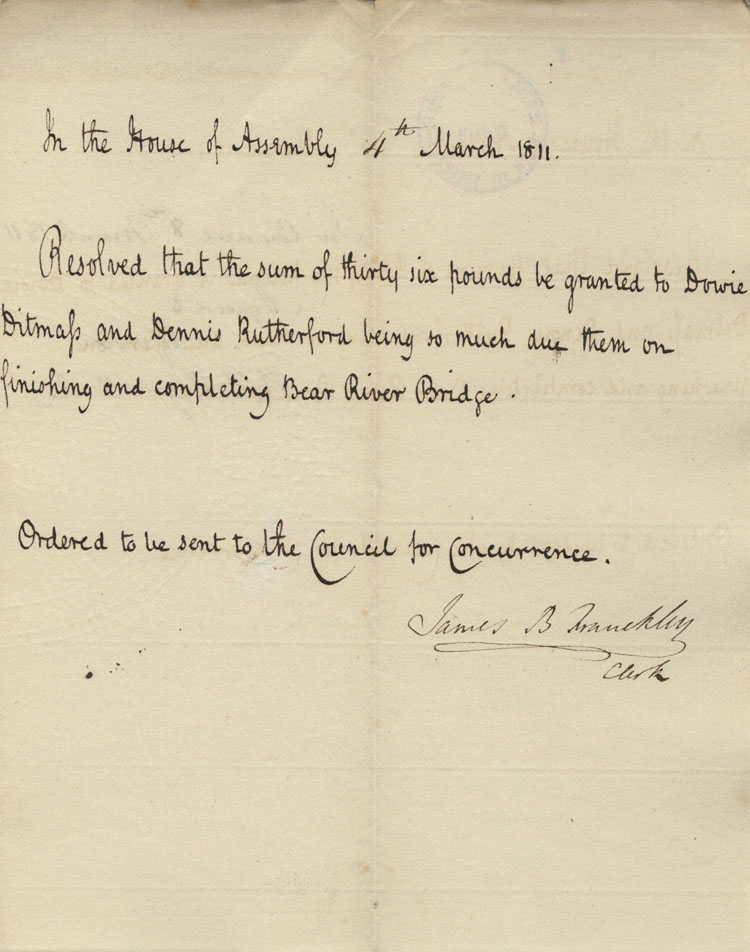 In the House of Assembly 4th March 1811.
Resolved that the sum of thirty six pounds be granted to Dowie
Ditmaſs and Dennis Rutherford being so much due them on
finishing and completing Bear River Bridge.
Ordered to be sent to the Council for Concurrence.
James B Franckley
Clerk